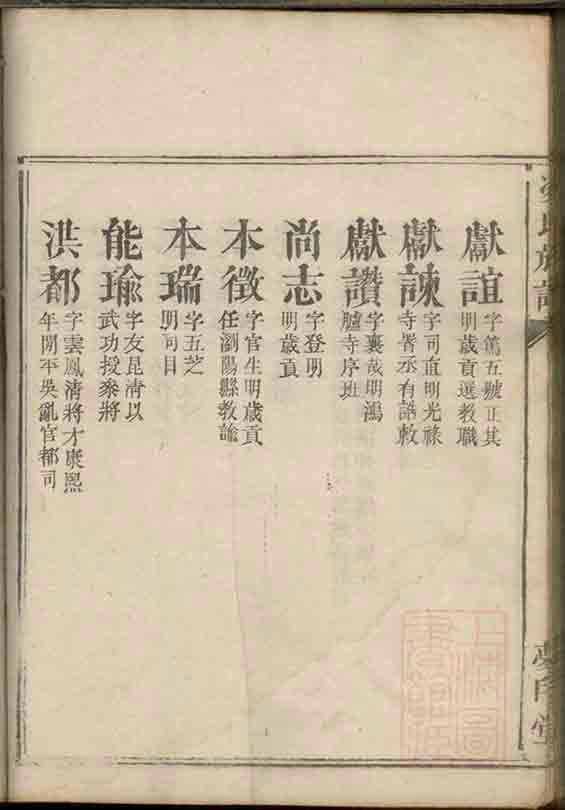 獻誼 字篤五號正其
明歲貢選教職
獻諫 字司直明光祿
寺署丞有誥敕
獻讚 字襄哉明鴻
臚寺序班
尚志 字登明
明歲貢
本徵 字官生明歲貢
任瀏陽縣教諭
本瑞 字五芝
明司目
能瑜 字友昆清以
武功授叅將
洪都 字雲鳳清將才康熙
年閒平吳亂官都司
氏族譜
上海圖書館藏